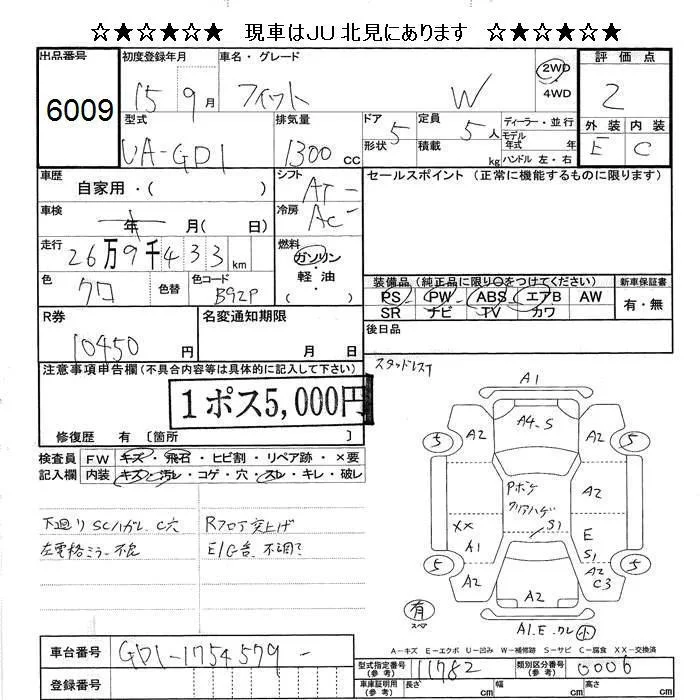 ☆★☆★☆★ 現車はJU北見にあります ☆★☆★☆★
出品番号 6009
初度登録年月 15 9月
車名・グレード フィット W
2WD
4WD
評価点 2
外装 E 内装 C
型式 UA-GD1
排気量 1300 cc
ドア 形状 5
定員 5人
積載 kg
ディーラー・並行
モデル年式 年
ハンドル 左・右
車歴 自家用・( )
シフト AT
セールスポイント (正常に機能するものに限ります)
車検 年 月( 日)
冷房 AC
走行 26万9千433km
燃料 ガソリン・軽・油 ( )
色 クロ 色替 色コード B92P
装備品(純正品に限り○をつけてください)
PS PW ABS エアB AW
SR ナビ TV カワ
新車保証書 有・無
R券 10450円
名変通知期限 月 日
後日品
スタッドレス
注意事項申告欄(不具合内容等は具体的に記入して下さい)
1ポス5,000円
修復歴 有 〔箇所 〕
検査員記入欄
FW キズ・飛石・ヒビ割・リペア跡・×要
内装 キズ・汚レ・コゲ・穴・スレ・キレ・破レ
下廻り SCハガレ C穴
左電格ミラー不良
Rフロア突上げ
E/G音、不調?
A1
A4・S
A2 5 5
Pボケ クリアハゲ
A2
XX A1
S1
E S1
A2 C3
A2 5 5
A2
有 スペア
A1.E.ワレ 小
A-キズ E-エクボ U-凹み W-補修跡 S-サビ C-腐食 XX-交換済
車台番号 GD1-1754579-
登録番号
型式指定番号(参考) 11782
類別区分番号(参考) 0006
車庫証明用(参考) 長さ cm 幅 cm 高さ cm